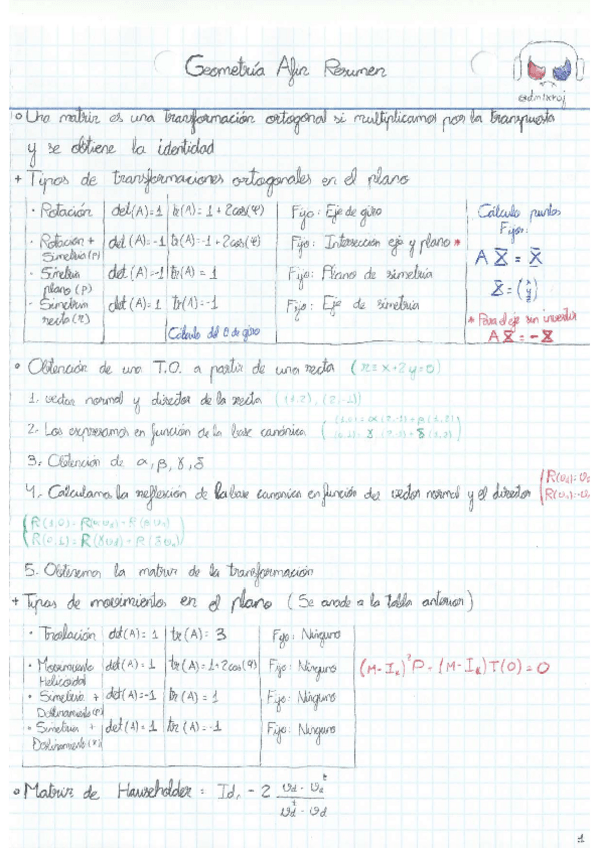 Geometría Afín Resumen
@dmtxroj
• Una matriz es una transformación ortogonal si multiplicamos por la transpuesta
y se obtiene la identidad
+ Tipos de transformaciones ortogonales en el plano
• Rotación det(A)=1 tr(A)=1+2cos(φ) Fijo: Eje de giro
• Rotación + Simetría(p) det(A)=-1 tr(A)=-1+2cos(φ) Fijo: Intersección eje y plano *
• Simetría plano(p) det(A)=-1 tr(A)=1 Fijo: Plano de simetría
• Simetría recta(r) det(A)=1 tr(A)=-1 Fijo: Eje de simetría
Cálculo del θ de giro
Cálculo puntos
Fijos:
A X̄ = X̄
X̄ = (x y z)
* Para el eje sin invertir
A X̄ = -X̄
• Obtención de una T.O. a partir de una recta (r≡x+2y=0)
1. vector normal y director de la recta ((1,2),(2,-1))
2. Los expresamos en función de la base canónica
(1,0)=α(2,-1)+β(1,2)
(0,1)=γ(2,-1)+δ(1,2)
3. Obtención de α, β, γ, δ
4. Calculamos la reflexión de la base canonica en función del vector normal y el director
R(1,0)=R(αvd)+R(βvn)
R(0,1)=R(γvd)+R(δvn)
5. Obtenemos la matriz de la transformación
+ Tipos de movimientos en el plano (Se añade a la tabla anterior)
• Traslación det(A)=1 tr(A)=3 Fijo: Ninguno
• Movimiento Helicoidal det(A)=1 tr(A)=1+2cos(φ) Fijo: Ninguno
• Simetría + Deslizamiento(p) det(A)=-1 tr(A)=1 Fijo: Ninguno
• Simetría + Deslizamiento(r) det(A)=1 tr(A)=-1 Fijo: Ninguno
(M-I_K)²P-(M-I_K)T(0)=0
• Matriz de Hauseholder = Id, - 2 vd·vd^t / vd^t·vd
1